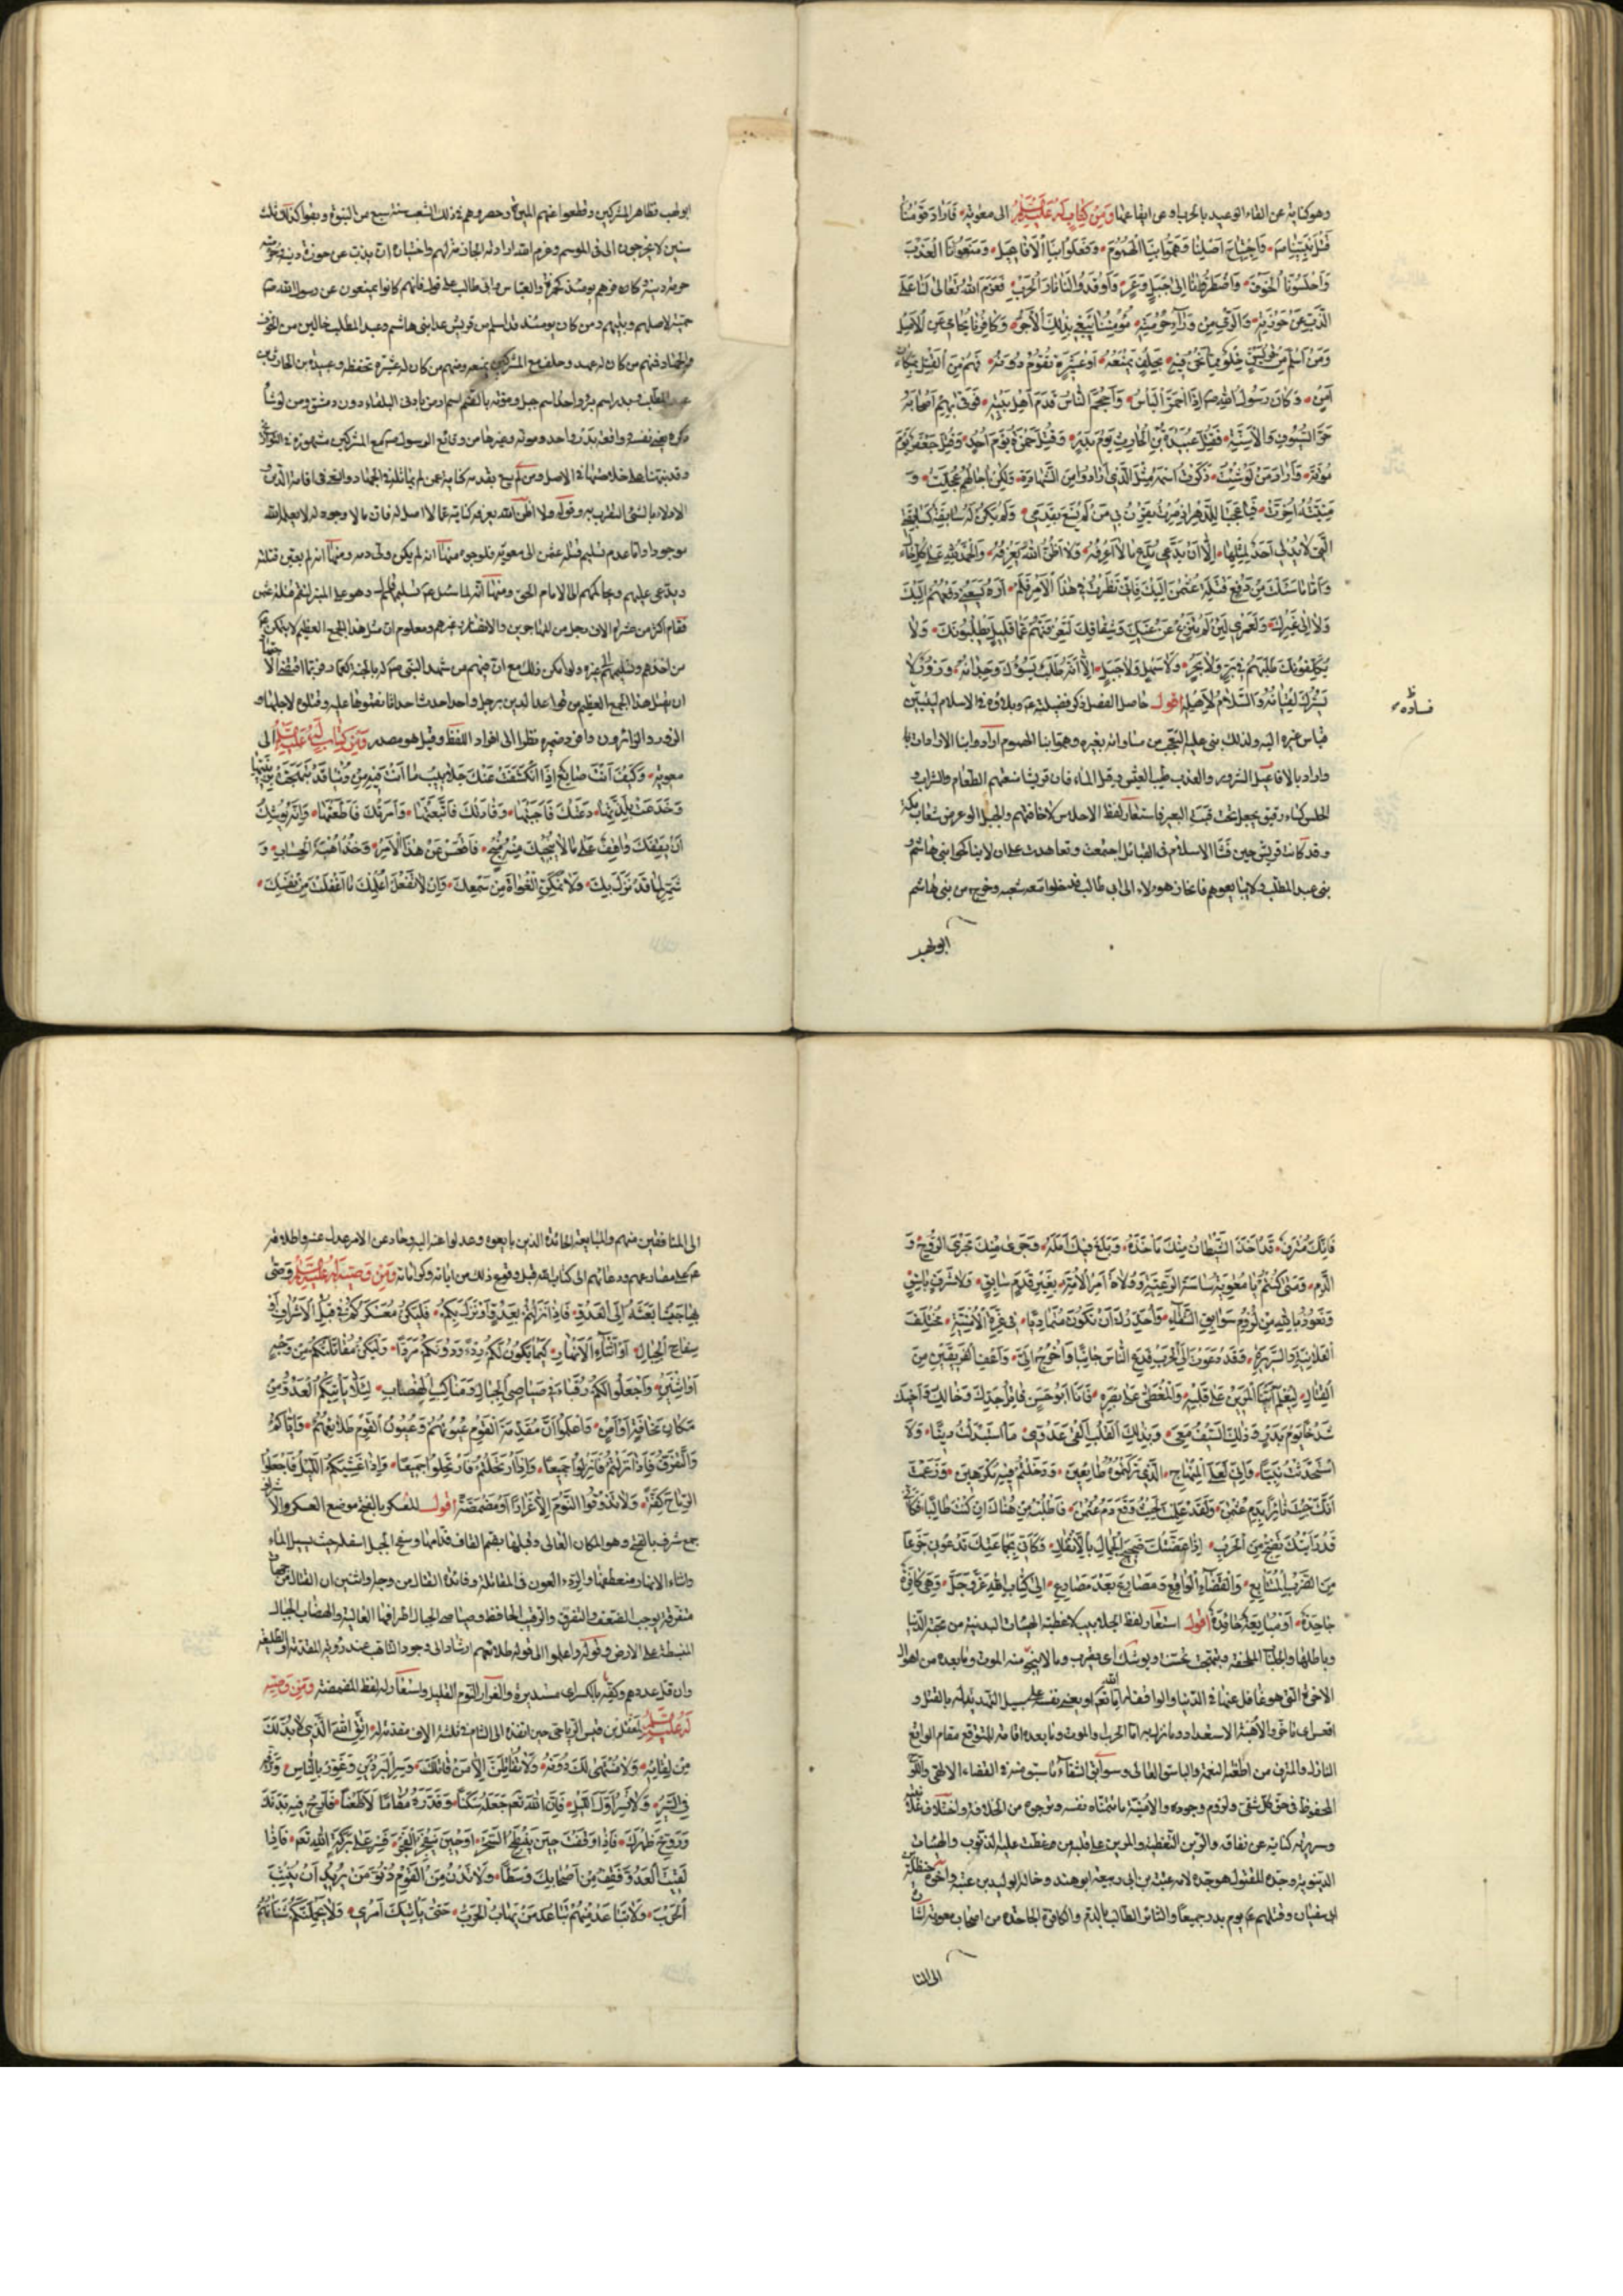 وهو كناية عن القاء الوعيد بالحرب او عن ايقاعها وَمِنْ كِتَابٍ لَهُ عَلَيْهِ السَّلَمُ الى معوية فَاَرَادَ قَوْمُنَا
قَتْلَ نَبِيِّنَا ص وَاجْتِيَاحَ اَصْلِنَا وَهَمُّوا بِنَا الْهُمُومَ وَفَعَلُوا بِنَا الْاَفَاعِيلَ وَمَنَعُونَا الْعَذْبَ
وَاَحْلَسُونَا الْخَوْفَ وَاضْطَرُّونَا اِلىٰ جَبَلٍ وَعْرٍ وَاَوْقَدُوا لَنَا نَارَ الْحَرْبِ فَعَزَمَ اللهُ تَعَالىٰ لَنَا عَلَى
الذَّبِّ عَنْ حَوْزَتِهِ وَالرَّمْىِ مِنْ وَرَاءِ حُرْمَتِهِ مُؤْمِنُنَا يَبْغِى بِذٰلِكَ الْاَجْرَ وَكَافِرُنَا يُحَامِى عَنِ الْاَصْلِ
وَمَنْ اَسْلَمَ مِنْ قُرَيْشٍ خِلْوٌ مِمَّا نَحْنُ فِيهِ بِحِلْفٍ يَمْنَعُهُ اَوْ عَشِيرَةٍ تَقُومُ دُونَهُ فَهُمْ مِنَ الْقَتْلِ بِمَكَانِ
اَمْنٍ وَكَانَ رَسُولُ اللهِ ص اِذَا احْمَرَّ الْبَأْسُ وَاَحْجَمَ النَّاسُ قَدَّمَ اَهْلَ بَيْتِهِ فَوَقَى بِهِمْ اَصْحَابَهُ
حَرَّ السُّيُوفِ وَالْاَسِنَّةِ فَقُتِلَ عُبَيْدَةُ بْنُ الْحَارِثِ يَوْمَ بَدْرٍ وَقُتِلَ حَمْزَةُ يَوْمَ اُحُدٍ وَقُتِلَ جَعْفَرٌ يَوْمَ
مُوتَةَ وَاَرَادَ مَنْ لَوْ شِئْتُ ذَكَرْتُ اسْمَهُ مِثْلَ الَّذِى اَرَادُوا مِنَ الشَّهَادَةِ وَلٰكِنْ اٰجَالُهُمْ عُجِّلَتْ وَ
مَنِيَّتُهُ اُخِّرَتْ فَيَا عَجَبًا لِلدَّهْرِ اِذْ صِرْتُ يُقْرَنُ بِى مَنْ لَمْ يَسْعَ بِقَدَمِى وَلَمْ يَكُنْ لَهُ كَسَابِقَتِى
الَّتِى لَا يُدْلِى اَحَدٌ بِمِثْلِهَا اِلَّا اَنْ يَدَّعِىَ مُدَّعٍ مَا لَا اَعْرِفُهُ وَلَا اَظُنُّ اللهَ يَعْرِفُهُ وَالْحَمْدُ لِلّهِ عَلىٰ كُلِّ حَالٍ
وَاَمَّا مَا سَئَلْتَ مِنْ دَفْعِ قَتَلَةِ عُثْمٰنَ اِلَيْكَ فَاِنِّى نَظَرْتُ فِى هٰذَا الْاَمْرِ فَلَمْ اَرَهُ يَسَعُنِى دَفْعُهُمْ اِلَيْكَ
وَلَا اِلىٰ غَيْرِكَ وَلَعَمْرِى لَئِنْ لَمْ تَنْزِعْ عَنْ غَيِّكَ وَشِقَاقِكَ لَتَعْرِفَنَّهُمْ عَمَّا قَلِيلٍ يَطْلُبُونَكَ وَلَا
يُكَلِّفُونَكَ طَلَبَهُمْ فِى بَرٍّ وَلَا بَحْرٍ وَلَا سَهْلٍ وَلَا جَبَلٍ اِلَّا اَنَّهُ طَلَبٌ يَسُوئُكَ وِجْدَانُهُ وَزَوْرٌ لَا
يَسُرُّكَ لُقْيَانُهُ وَالسَّلَامُ لِاَهْلِهِ اقول حاصل الفصل ذكر فضيلته ع وبلاؤه فى الاسلام ليتبين
قياس غيره اليه ولذلك بنى عليه التعجب من مساواته بغيره وهموا بنا الهموم ارادوا بنا الارادات با
واراد بالافاعيل الشرور والعذب طيب العيش وقيل الماء فان قريشا منعتهم الطعام والشراب و
الحلس كساء رقيق يجعل تحت قتب البعير فاستعار لفظ الاحلاس لاخافتهم والجبل الوعر من شعاب مكة
وقد كانت قريش حين فشا الاسلام فى القبائل اجتمعت وتعاهدت على ان لا يناكحوا بنى هاشم و
بنى عبد المطلب ولا يبايعوهم فانحاز هولاء الى ابى طالب فدخلوا معه شعبه وخرج من بنى هاشم
ابو لهب
فسادہ
ابو لهب وظاهر المشركين وقطعوا عنهم الميرة وحصروهم فى ذلك الشعب سنة سبع من النبوة وبقوا كذلك ثلث
سنين لا يخرجون الا فى الموسم وعزم الله ارادته الجازمة لهم واختياره ان يذبّ عن حوزة دينه وحرمته
حرمة دينه وكان منهم يومئذ كحمزة والعباس وابى طالب على قول فانهم كانوا يمنعون عن رسول الله ص
حمية لاصلهم وبيتهم ومن كان يومئذ قد اسلم من قريش عدا بنى هاشم وعبد المطلب خالين من الخوف
والجهاد فمنهم من كان له عهد وحلف مع المشركين يمنعه ومنهم من كان له عشيرة تحفظه وعبيدة بن الحارث بن
عبد المطلب وبدر اسم بئر واحد اسم جبل وموته بالضم اسم ارض بادنى البلقاء دون دمشق ومن لو شأ
ذكره يعنى نفسه وواقعة بدر واحد وموته وغيرها من وقائع الرسول ص مع المشركين مشهورة فى التواريخ
وقد نبهنا على خلاصتها فى الاصل ومن لم يسع بقدمه كناية عمن لم يماثله فى الجهاد والسعى فى اقامة الدين و
الادلاء بالشئ التقرب به وقوله ولا اظن الله يعرفه كناية عما لا اصل له فان ما لا وجود له لا يعلمه الله
موجودا واما عدم تسليم قتلة عثمن الى معوية فلوجوه منها انه لم يكن ولى دمه ومنها انه لم يعين قتلته
ويدعى عليهم ويحاكمهم الى الامام الحق ومنها انه لما سئل ع تسليم قتلته وهو على المنبر ليقم قتلة عثمن
فقام اكثر من عشرة الاف رجل من المهاجرين والانصار وغيرهم ومعلوم ان مثل هذا الجمع العظيم لا يتمكن ع
من اخذهم وتسليمهم الى غيره ولو امكن ذلك مع ان فيهم من شهد النبى ص له بالجنة كعمار وربما اقتضى اجتهادهم
ان يقتل هذا الجمع العظيم من قواعد الدين برجل واحد احدث احداثا نقموها عليه وقتلوه لاجلها و
الزور الزائرون وافرد ضميره نظرا الى افراد اللفظ وقيل هو مصدر وَمِنْ كِتَابٍ لَهُ عَلَيْهِ السَّلَمُ الى
معوية وَكَيْفَ اَنْتَ صَانِعٌ اِذَا انْكَشَفَتْ عَنْكَ جَلَابِيبُ مَا اَنْتَ فِيهِ مِنْ دُنْيَا قَدْ تَبَهَّجَتْ بِزِينَتِهَا
وَخَدَعَتْ بِلَذَّتِهَا دَعَتْكَ فَاَجَبْتَهَا وَقَادَتْكَ فَاتَّبَعْتَهَا وَاَمَرَتْكَ فَاَطَعْتَهَا وَاِنَّهُ يُوشِكُ
اَنْ يَقِفَكَ وَاقِفٌ عَلىٰ مَا لَا يُنْجِيكَ مِنْهُ مُنْجٍ فَاقْعَسْ عَنْ هٰذَا الْاَمْرِ وَخُذْ اُهْبَةَ الْحِسَابِ وَ
شَمِّرْ لِمَا قَدْ نَزَلَ بِكَ وَلَا تُمَكِّنِ الْغُوَاةَ مِنْ سَمْعِكَ وَاِنْ لَا تَفْعَلْ اُعْلِمْكَ مَا اَغْفَلْتَ مِنْ نَفْسِكَ
فَاِنَّكَ مُتْرَفٌ قَدْ اَخَذَ الشَّيْطَانُ مِنْكَ مَأْخَذَهُ وَبَلَغَ فِيكَ اَمَلَهُ وَجَرىٰ مِنْكَ مَجْرَى الرُّوحِ وَ
الدَّمِ وَمَتىٰ كُنْتُمْ يَا مُعٰوِيَةُ سَاسَةَ الرَّعِيَّةِ وَوُلَاةَ اَمْرِ الْاُمَّةِ بِغَيْرِ قَدَمٍ سَابِقٍ وَلَا شَرَفٍ بَاسِقٍ
وَنَعُوذُ بِاللهِ مِنْ لُزُومِ سَوَابِقِ الشَّقَاءِ وَاُحَذِّرُكَ اَنْ تَكُونَ مُتَمَادِيًا فِى غِرَّةِ الْاُمْنِيَّةِ مُخْتَلِفَ
الْعَلَانِيَةِ وَالسَّرِيرَةِ وَقَدْ دَعَوْتَ اِلَى الْحَرْبِ فَدَعِ النَّاسَ جَانِبًا وَاخْرُجْ اِلَىَّ وَاَعْفِ الْفَرِيقَيْنِ مِنَ
الْقِتَالِ لِيُعْلَمَ اَيُّنَا الْمَرِينُ عَلىٰ قَلْبِهِ وَالْمُغَطّٰى عَلىٰ بَصَرِهِ فَاَنَا اَبُو حَسَنٍ قَاتِلُ جَدِّكَ وَخَالِكَ وَاَخِيكَ
شَدْخًا يَوْمَ بَدْرٍ وَذٰلِكَ السَّيْفُ مَعِى وَبِذٰلِكَ الْقَلْبِ اَلْقىٰ عَدُوِّى مَا اسْتَبْدَلْتُ دِينًا وَلَا
اسْتَحْدَثْتُ نَبِيًّا وَاِنِّى لَعَلَى الْمِنْهَاجِ الَّذِى تَرَكْتُمُوهُ طَائِعِينَ وَدَخَلْتُمْ فِيهِ مُكْرَهِينَ وَزَعَمْتَ
اَنَّكَ جِئْتَ ثَائِرًا بِدَمِ عُثْمٰنَ وَلَقَدْ عَلِمْتَ حَيْثُ وَقَعَ دَمُ عُثْمٰنَ فَاطْلُبْهُ مِنْ هُنَاكَ اِنْ كُنْتَ طَالِبًا فَكَاَنِّى
قَدْ رَاَيْتُكَ تَضِجُّ مِنَ الْحَرْبِ اِذَا عَضَّتْكَ ضَجِيجَ الْجِمَالِ بِالْاَثْقَالِ وَكَاَنِّى بِجَمَاعَتِكَ تَدْعُونِى جَزَعًا
مِنَ الضَّرْبِ الْمُتَتَابِعِ وَالْقَضَاءِ الْوَاقِعِ وَمَصَارِعَ بَعْدَ مَصَارِعَ اِلىٰ كِتَابِ اللهِ عَزَّ وَجَلَّ وَهِىَ كَافِرَةٌ
جَاحِدَةٌ اَوْ مُبَايِعَةٌ حَائِدَةٌ اقول استعار لفظ الجلابيب لاغطية الهيئات البدنية من محبة الدنيا
وباطلها والجلباب الملحفة وتبهجت تحسنت ويوشك اى يقرب وما لا ينجيه منه الموت وما بعده من اهوال
الاخرة التى هو غافل عنها فى الدنيا والواقف له اياه الله تعم او يعنى نفسه على سبيل التهديد له بالقتل و
اقعس اى تاخر والاهبة الاستعداد وما نزل به اما الحرب او الموت وما بعده اقامة للمتوقع مقام الواقع
النازل والمترف من اطغته النعمة والباسق العالى وسوابق الشقاء ما سبق منه فى القضاء الالهى واللوح
المحفوظ فى حق كل شقى ولزوم وجوده والامنية ما يتمناه نفسه ويرجوه من الخلافة واختلاف علانيته
وسريرته كناية عن نفاقه والرين التغطية والمرين على قلبه من غطت عليه الذنوب والهيئات
الدنيوية وجده المقتول هو جده لامه عتبة بن ابى ربيعة ابو هند وخاله الوليد بن عتبة واخوه حنظلة بن
ابى سفيان وقتلهم ع يوم بدر جميعا والثائر الطالب بالدم والكافرة الجاحدة من اصحاب معوية اشارة
الى المنا
الى المنافقين منهم والمبايعة الحائدة الذين بايعوه وعدلوا عنه اليه وحاد عن الامر عدل عنه واطلاعه
ع على مصارعهم ودعائهم الى كتاب الله قبل وقوع ذلك من اياته وكراماته وَمِنْ وَصِيَّةٍ لَهُ عَلَيْهِ السَّلَمُ وصّى
بِهَا جَيْشًا بَعَثَهُ اِلَى الْعَدُوِّ فَاِذَا نَزَلْتُمْ بِعَدُوٍّ اَوْ نَزَلَ بِكُمْ فَلْيَكُنْ مُعَسْكَرُكُمْ فِى قُبُلِ الْاَشْرَافِ اَوْ
سِفَاحِ الْجِبَالِ اَوْ اَثْنَاءِ الْاَنْهَارِ كَيْمَا يَكُونَ لَكُمْ رِدْءًا وَدُونَكُمْ مَرَدًّا وَلْيَكُنْ مُقَاتَلَتُكُمْ مِنْ وَجْهٍ
اَوِ اثْنَيْنِ وَاجْعَلُوا لَكُمْ رُقَبَاءَ فِى صَيَاصِى الْجِبَالِ وَمَنَاكِبِ الْهِضَابِ لِئَلَّا يَأْتِيَكُمُ الْعَدُوُّ مِنْ
مَكَانِ مَخَافَةٍ اَوْ اَمْنٍ وَاعْلَمُوا اَنَّ مُقَدِّمَةَ الْقَوْمِ عُيُونُهُمْ وَعُيُونَ الْقَوْمِ طَلَائِعُهُمْ وَاِيَّاكُمْ
وَالتَّفَرُّقَ فَاِذَا نَزَلْتُمْ فَانْزِلُوا جَمِيعًا وَاِذَا ارْتَحَلْتُمْ فَارْتَحِلُوا جَمِيعًا وَاِذَا غَشِيَكُمُ اللَّيْلُ فَاجْعَلُوا
الرِّمَاحَ كِفَّةً وَلَا تَذُوقُوا النَّوْمَ اِلَّا غِرَارًا اَوْ مَضْمَضَةً اقول المعسكر بالفتح موضع العسكر والاشراف
جمع شرف بالفتح وهو المكان العالى وقبلها بضم القاف قدامها وسفح الجبل اسفله حيث يسيل الماء
واثناء الانهار منعطفها والردء العون فى المقاتلة وفائدة القتال من وجه او اثنين ان القتال من جهات
متفرقة يوجب الضعف والتفرق والرقيب الحافظ وصياصى الجبال اطرافها العالية والهضاب الجبال
المنبسطة على الارض وقوله واعلموا الى قوله طلائعهم ارشاد الى وجوب التاهب عند رؤية المقدمة والطليعة
وان قل عددهم وكفة بالكسر اى مستديرة والغرار النوم القليل واستعار له لفظ المضمضة وَمِنْ وَصِيَّةٍ
لَهُ عَلَيْهِ السَّلَمُ لمعقل بن قيس الرياحى حين انفذه الى الشام فى ثلثة الاف مقدمة له اِتَّقِ اللهَ الَّذِى لَا بُدَّ لَكَ
مِنْ لِقَائِهِ وَلَا مُنْتَهىٰ لَكَ دُونَهُ وَلَا تُقَاتِلَنَّ اِلَّا مَنْ قَاتَلَكَ وَسِرِ الْبَرْدَيْنِ وَغَوِّرْ بِالنَّاسِ وَرَفِّهْ
فِى السَّيْرِ وَلَا تَسِرْ اَوَّلَ اللَّيْلِ فَاِنَّ اللهَ تَعَم جَعَلَهُ سَكَنًا وَقَدَّرَهُ مُقَامًا لَا ظَعْنًا فَاَرِحْ فِيهِ بَدَنَكَ
وَرَوِّحْ ظَهْرَكَ فَاِذَا وَقَفْتَ حِينَ يَنْبَطِحُ السَّحَرُ اَوْ حِينَ يَنْفَجِرُ الْفَجْرُ فَسِرْ عَلىٰ بَرَكَةِ اللهِ تَعَم فَاِذَا
لَقِيتَ الْعَدُوَّ فَقِفْ مِنْ اَصْحَابِكَ وَسَطًا وَلَا تَدْنُ مِنَ الْقَوْمِ دُنُوَّ مَنْ يُرِيدُ اَنْ يُنْشِبَ
الْحَرْبَ وَلَا تَبَاعَدْ مِنْهُمْ تَبَاعُدَ مَنْ يَهَابُ الْحَرْبَ حَتّٰى يَاْتِيَكَ اَمْرِى وَلَا يَحْمِلَنَّكُمْ شَنَاٰنُهُمْ